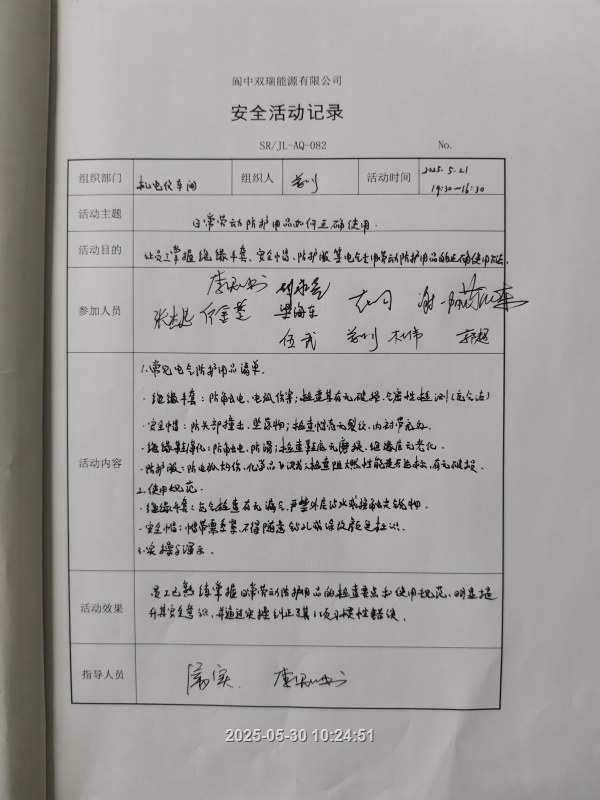 阆中双瑞能源有限公司
安全活动记录
SR/JL-AQ-082 No.
组织部门 机电仪车间 组织人 活动时间 2025.5.21
14:30~16:30
活动主题 日常劳动防护用品如何正确使用.
活动目的 让员工掌握绝缘手套、安全帽、防护服等电气专用劳动防护用品的正确使用方法.
参加人员
梁海车
伍武 郭超
活动内容
1.常见电气防护用品清单.
·绝缘手套:防触电、电弧伤害;检查其有无破损、气密性检测(充气法)
·安全帽:防头部撞击、坠落物;检查帽壳无裂纹、内衬带完好.
·绝缘鞋:防触电、防滑;检查鞋底无磨损、绝缘层无老化.
·防护服:防电弧灼伤、化学品飞溅;检查阻燃性能是否达标,有无破损.
2.使用规范.
·绝缘手套:充气检查有无漏气,严禁外层沾水或接触尖锐物.
·安全帽:帽带需系紧,不得随意钻孔或涂改颜色标识.
3.实操与演示.
活动效果 员工已熟练掌握日常劳动防护用品的检查要点和使用规范、明显提
升其安全意识,并通过实操纠正了其习惯性错误.
指导人员
2025-05-30 10:24:51